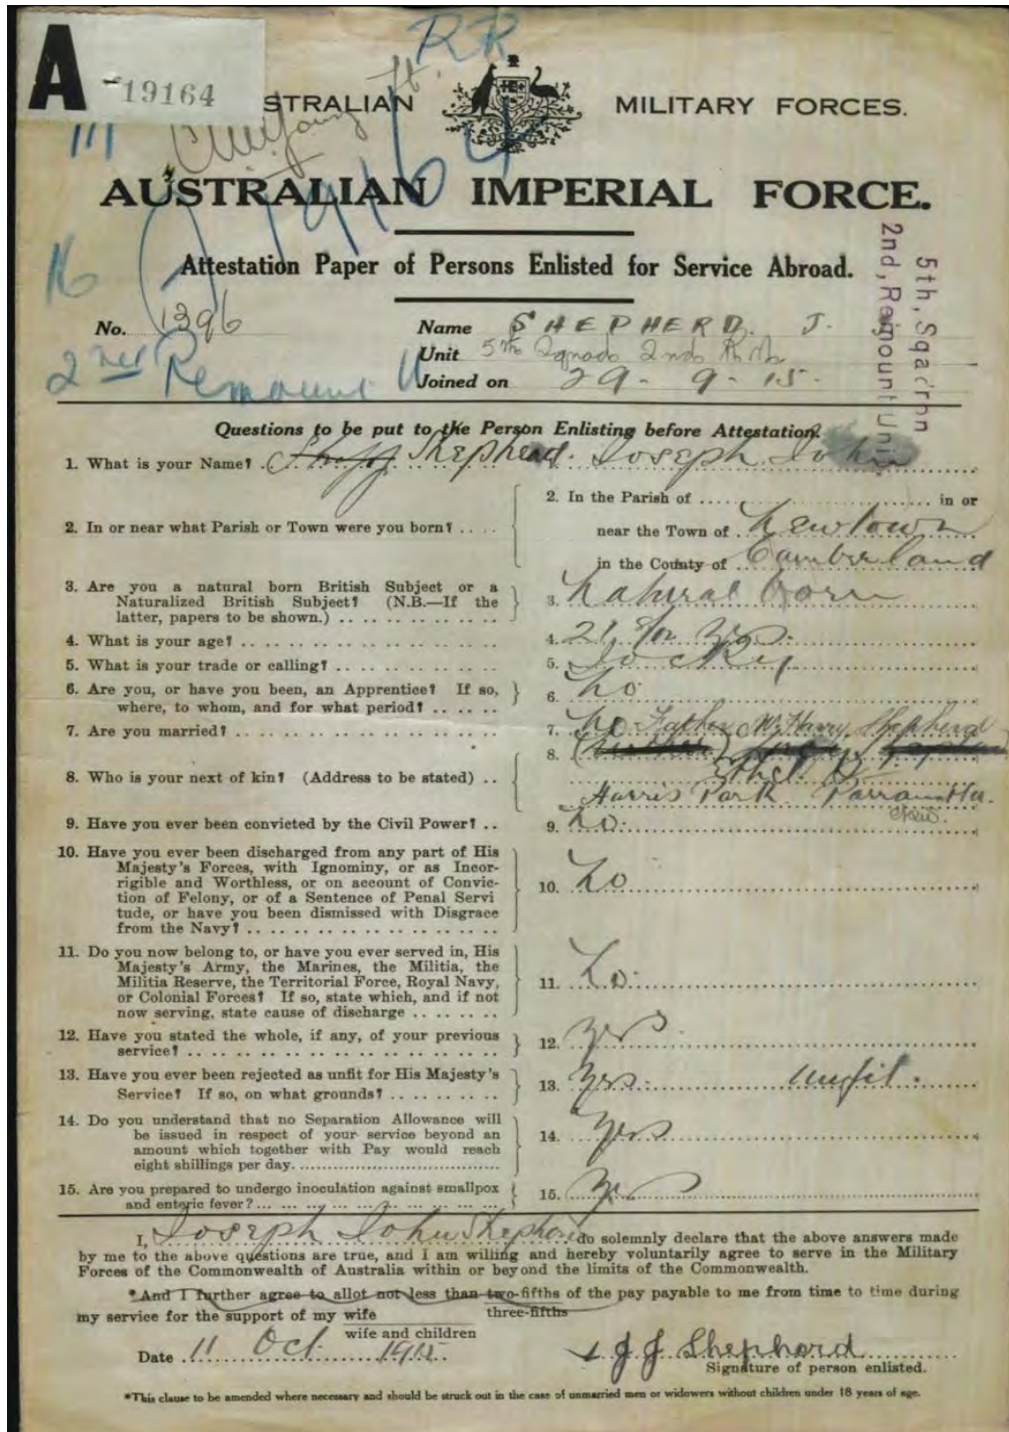 A
-19164
RR
STRALIAN MILITARY FORCES.
19164
AUSTRALIAN IMPERIAL FORCE.
16
Attestation Paper of Persons Enlisted for Service Abroad.
5th, Sqad'rnn
2nd, Remount Unit
No. 1396
Name SHEPHERD. J.
Unit 5th Squads 2nd
Joined on 29-9-15.
2nd Remount U
Questions to be put to the Person Enlisting before Attestation.
1. What is your Name? Shepherd. Joseph John
2. In or near what Parish or Town were you born? ....
2. In the Parish of .......... in or
near the Town of Newtown
in the County of Cumberland
3. Are you a natural born British Subject or a
Naturalized British Subject? (N.B.—If the
latter, papers to be shown.)
3. Natural born
4. What is your age?
4. 21 yrs.
5. What is your trade or calling?
5. Jockey
6. Are you, or have you been, an Apprentice? If so,
where, to whom, and for what period?
6. No
7. Are you married?
7. No Father Mr Harry Shepherd
8. Who is your next of kin? (Address to be stated) ..
8.
Ethel St
Harris Park Parramatta.
NSW.
9. Have you ever been convicted by the Civil Power? ..
9. No.
10. Have you ever been discharged from any part of His
Majesty's Forces, with Ignominy, or as Incor-
rigible and Worthless, or on account of Convic-
tion of Felony, or of a Sentence of Penal Servi
tude, or have you been dismissed with Disgrace
from the Navy?
10. No
11. Do you now belong to, or have you ever served in, His
Majesty's Army, the Marines, the Militia, the
Militia Reserve, the Territorial Force, Royal Navy,
or Colonial Forces? If so, state which, and if not
now serving, state cause of discharge
11. No.
12. Have you stated the whole, if any, of your previous
service?
12. Yes
13. Have you ever been rejected as unfit for His Majesty's
Service? If so, on what grounds?
13. Yes. Unfit.
14. Do you understand that no Separation Allowance will
be issued in respect of your service beyond an
amount which together with Pay would reach
eight shillings per day.
14. Yes
15. Are you prepared to undergo inoculation against smallpox
and enteric fever?
15. Yes
I, Joseph John Shepherd do solemnly declare that the above answers made
by me to the above questions are true, and I am willing and hereby voluntarily agree to serve in the Military
Forces of the Commonwealth of Australia within or beyond the limits of the Commonwealth.
*And I further agree to allot not less than two-fifths of the pay payable to me from time to time during
three-fifths
my service for the support of my wife
wife and children
Date 11 Oct 1915
J J Shephard
Signature of person enlisted.
*This clause to be amended where necessary and should be struck out in the case of unmarried men or widowers without children under 18 years of age.